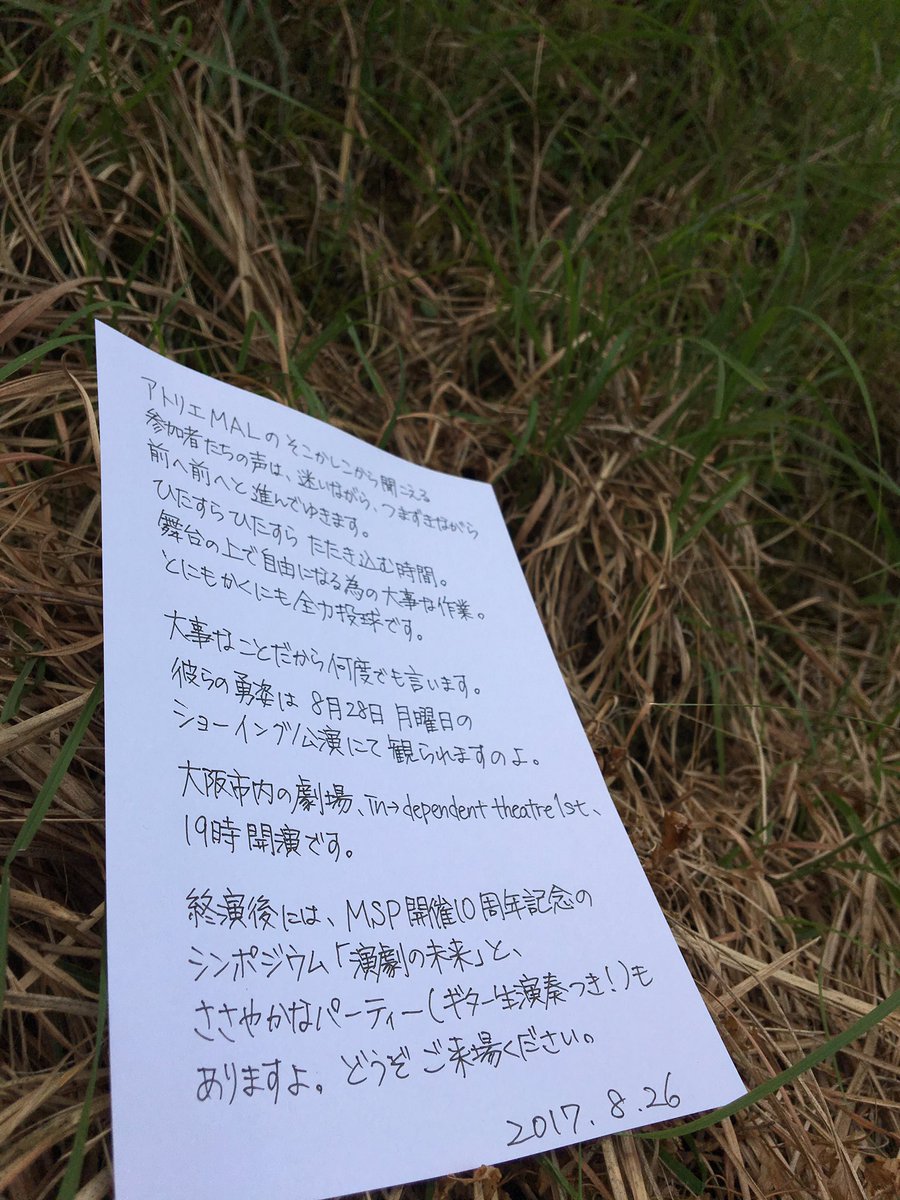 アトリエMALのそこかしこから聞こえる
参加者たちの声は、迷いながら、つまずきながら
前へ前へと進んでゆきます。
ひたすらひたすら たたき込む時間。
舞台の上で自由になる為の大事な作業。
とにもかくにも全力投球です。
大事なことだから何度でも言います。
彼らの勇姿は 8月28日 月曜日の
ショーイング公演にて観られますのよ。
大阪市内の劇場、In→dependent theatre 1st、
19時開演です。
終演後には、MSP開催10周年記念の
シンポジウム「演劇の未来」と、
ささやかなパーティー(ギター生演奏つき!)も
ありますよ。どうぞ ご来場ください。
2017.8.26